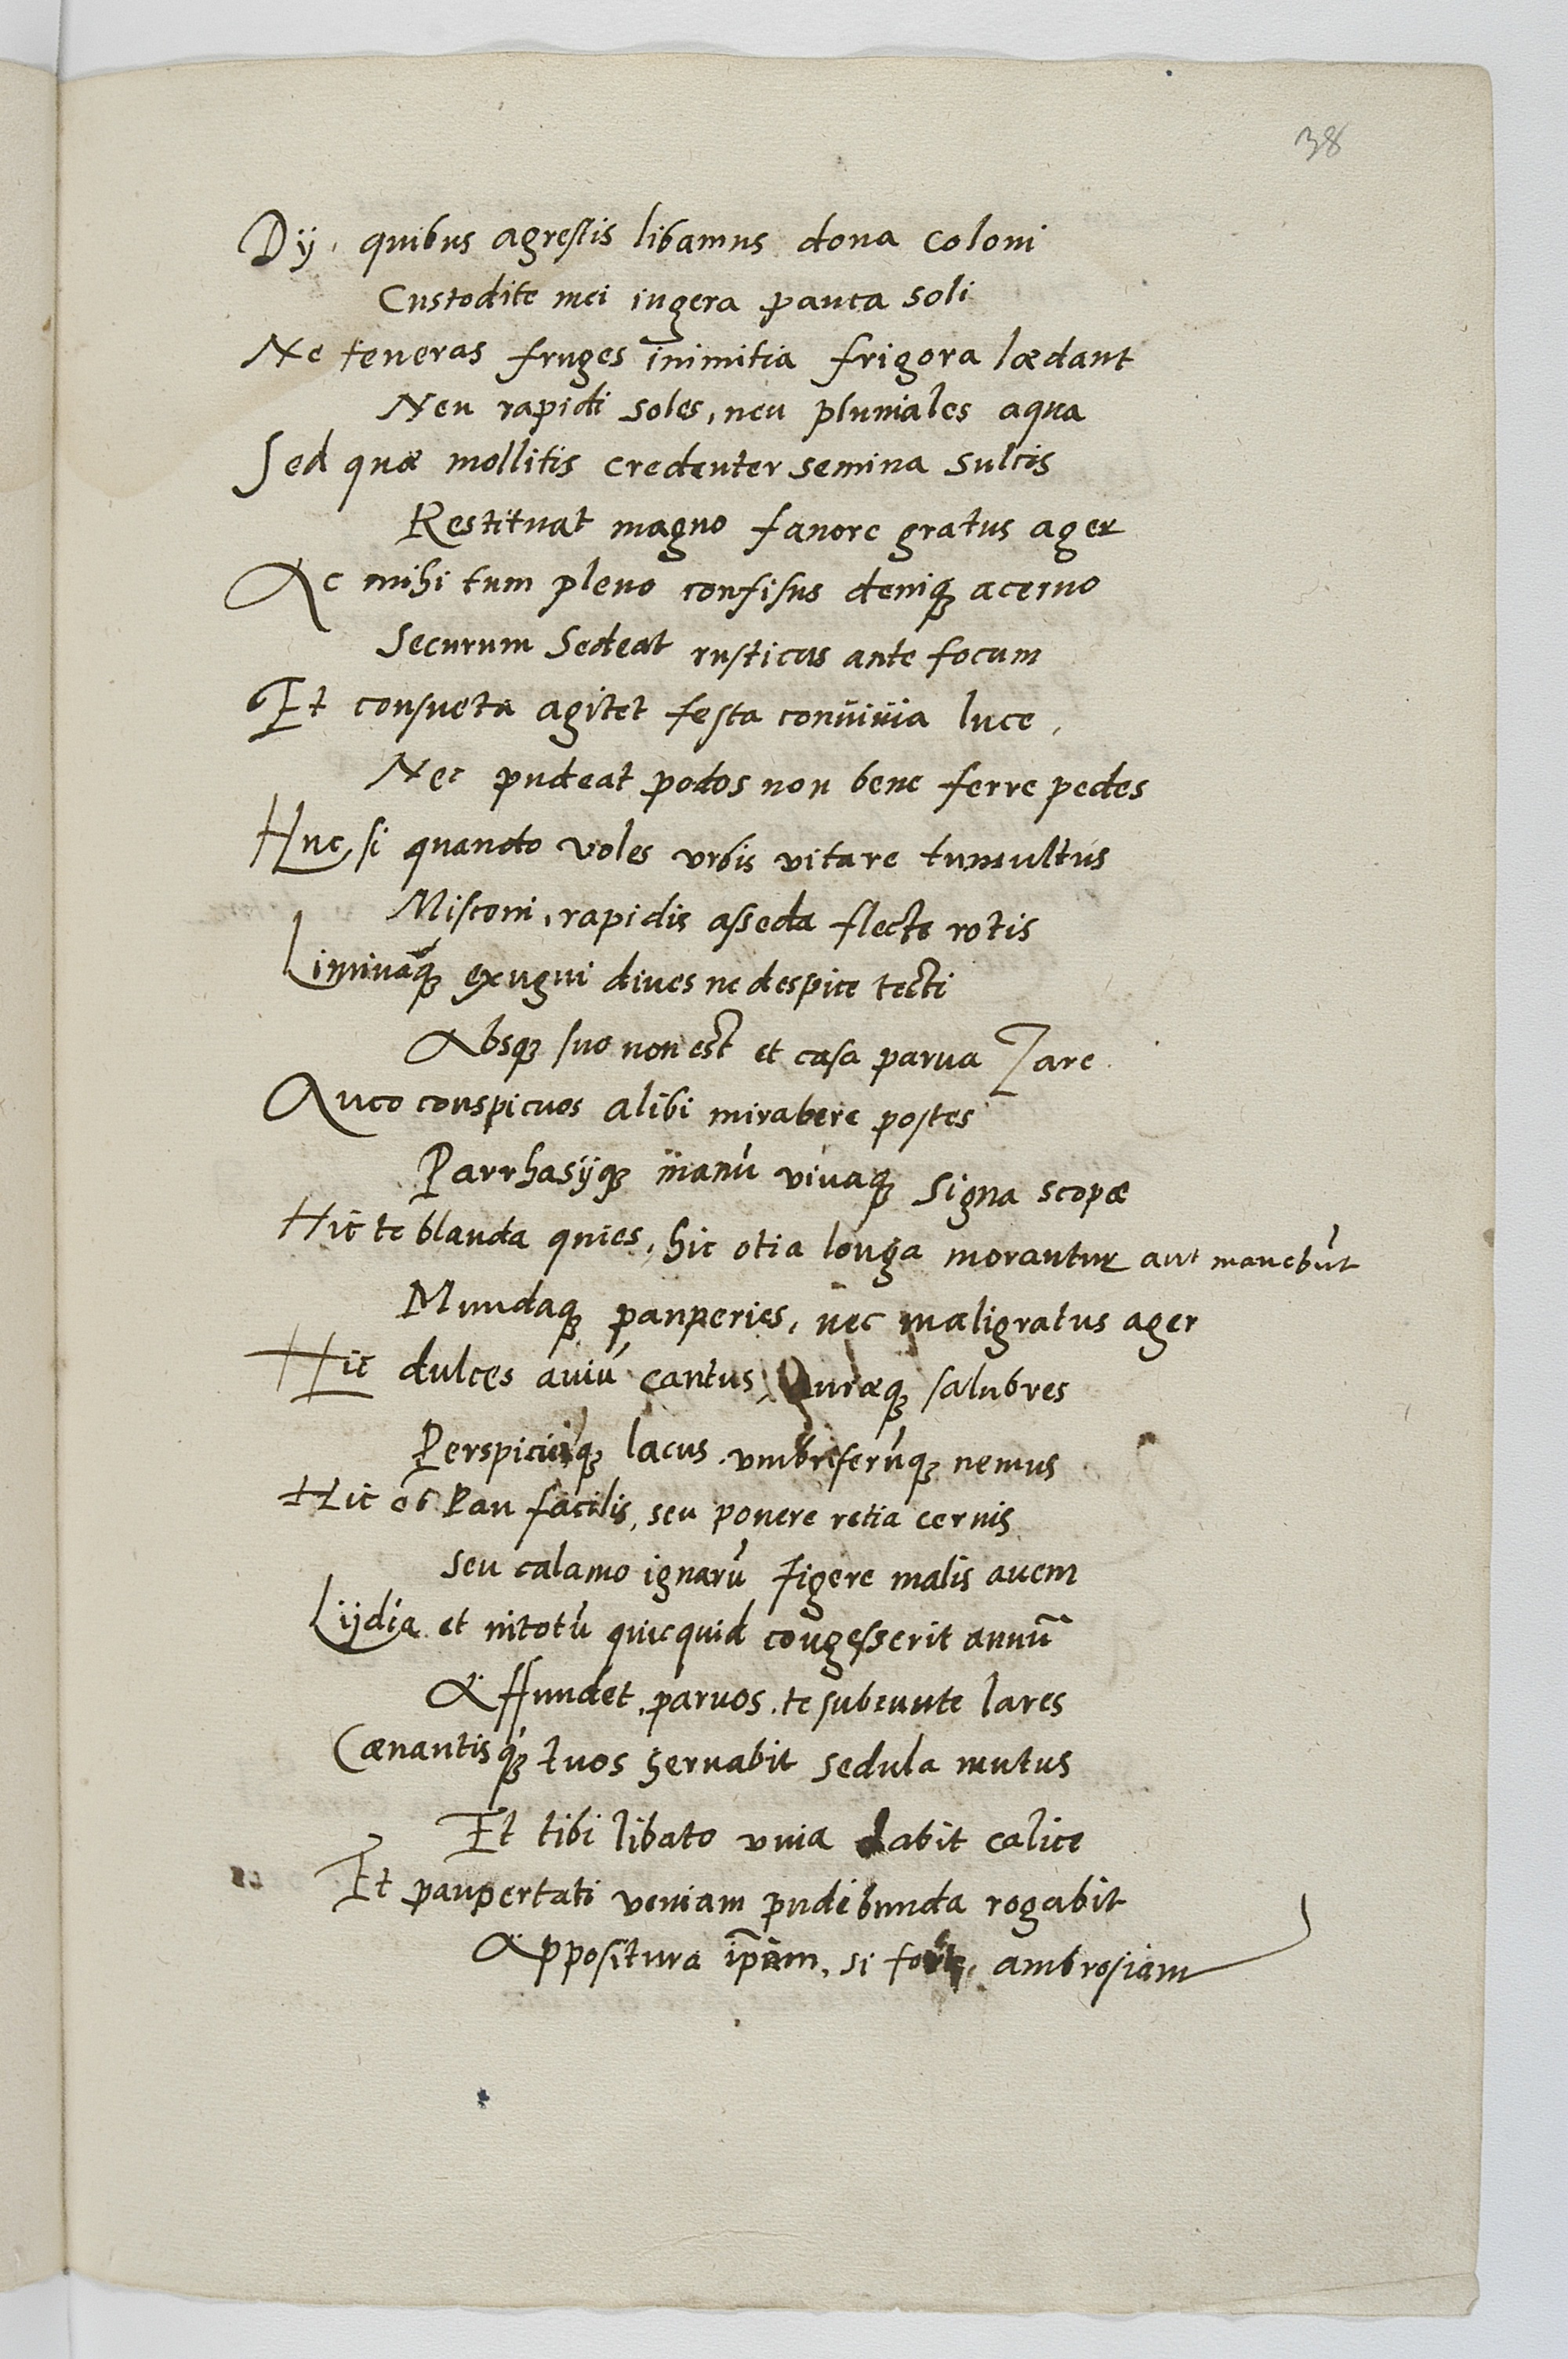 38
Dij, quibus agrestis libamus dona coloni
Custodite mei iugera pauca soli
Ne teneras fruges inimitia frigora lædant
Neu rapidi soles, neu pluuiales aqua
Sed quæ mollitis credenter semina sulcis
Restituat magno fanore gratus ager
Ac mihi tum pleno confisus deniq; aceruo
Securum sedeat rusticus ante focum
Et consueta agitet festa conuiuia luce,
Nec pudeat podos non bene ferre pedes
Huc, si quando voles vrbis vitare tumultus
Misconi, rapidis asseda flecte rotis
Liminaq; exugui diues ne despice tecti
Absq; suo non est et casa parua Lare.
Auco conspicuos alibi mirabere postes
Parrhasijq; manu viuaq; signa scopæ
Hic te blanda quies, hic otia longa morantur aut manebūt
Mundaq; pauperies, nec maligratus ager
Hic dulces auiū cantus, Auræq; salubres
Perspicuiq; lacus, vmbriferūq; nemus
Hic Pan facilis, seu ponere retia cernis
Seu calamo ignarū figere malis auem
Lydia et nitotū quicquid congesserit annū
Affundet, paruos, te subeunte lares
Cænantisq; tuos seruabit sedula nutus
Et tibi libato vina dabit calice
Et paupertati veniam pudibunda rogabit
Appositura ipam, si ambrosiam